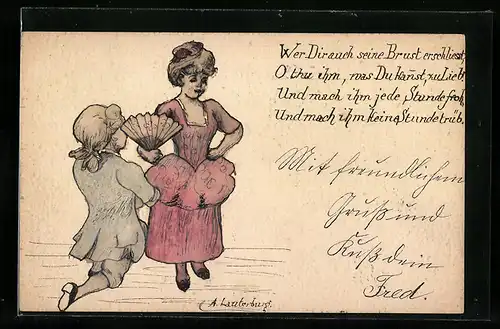 Wer Dir auch seine Brust erschliesst,
O thu ihm, was Du kan̄st, zu Lieb!
Und mach ihm jede Stunde froh,
Und mach ihm keine Stunde trüb.
Mit freundlichem
Gruß und
Kuß dein
Fred.
A. Lauterburg.